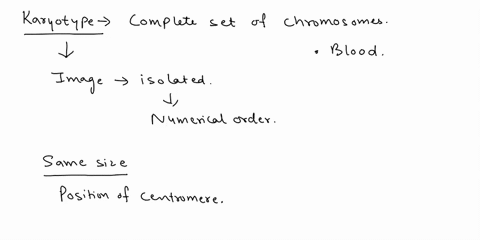 Karyotype → Complete set of chromosomes.
• Blood.
↓
Image → isolated.
↓
Numerical order.
Same size
Position of centromere.